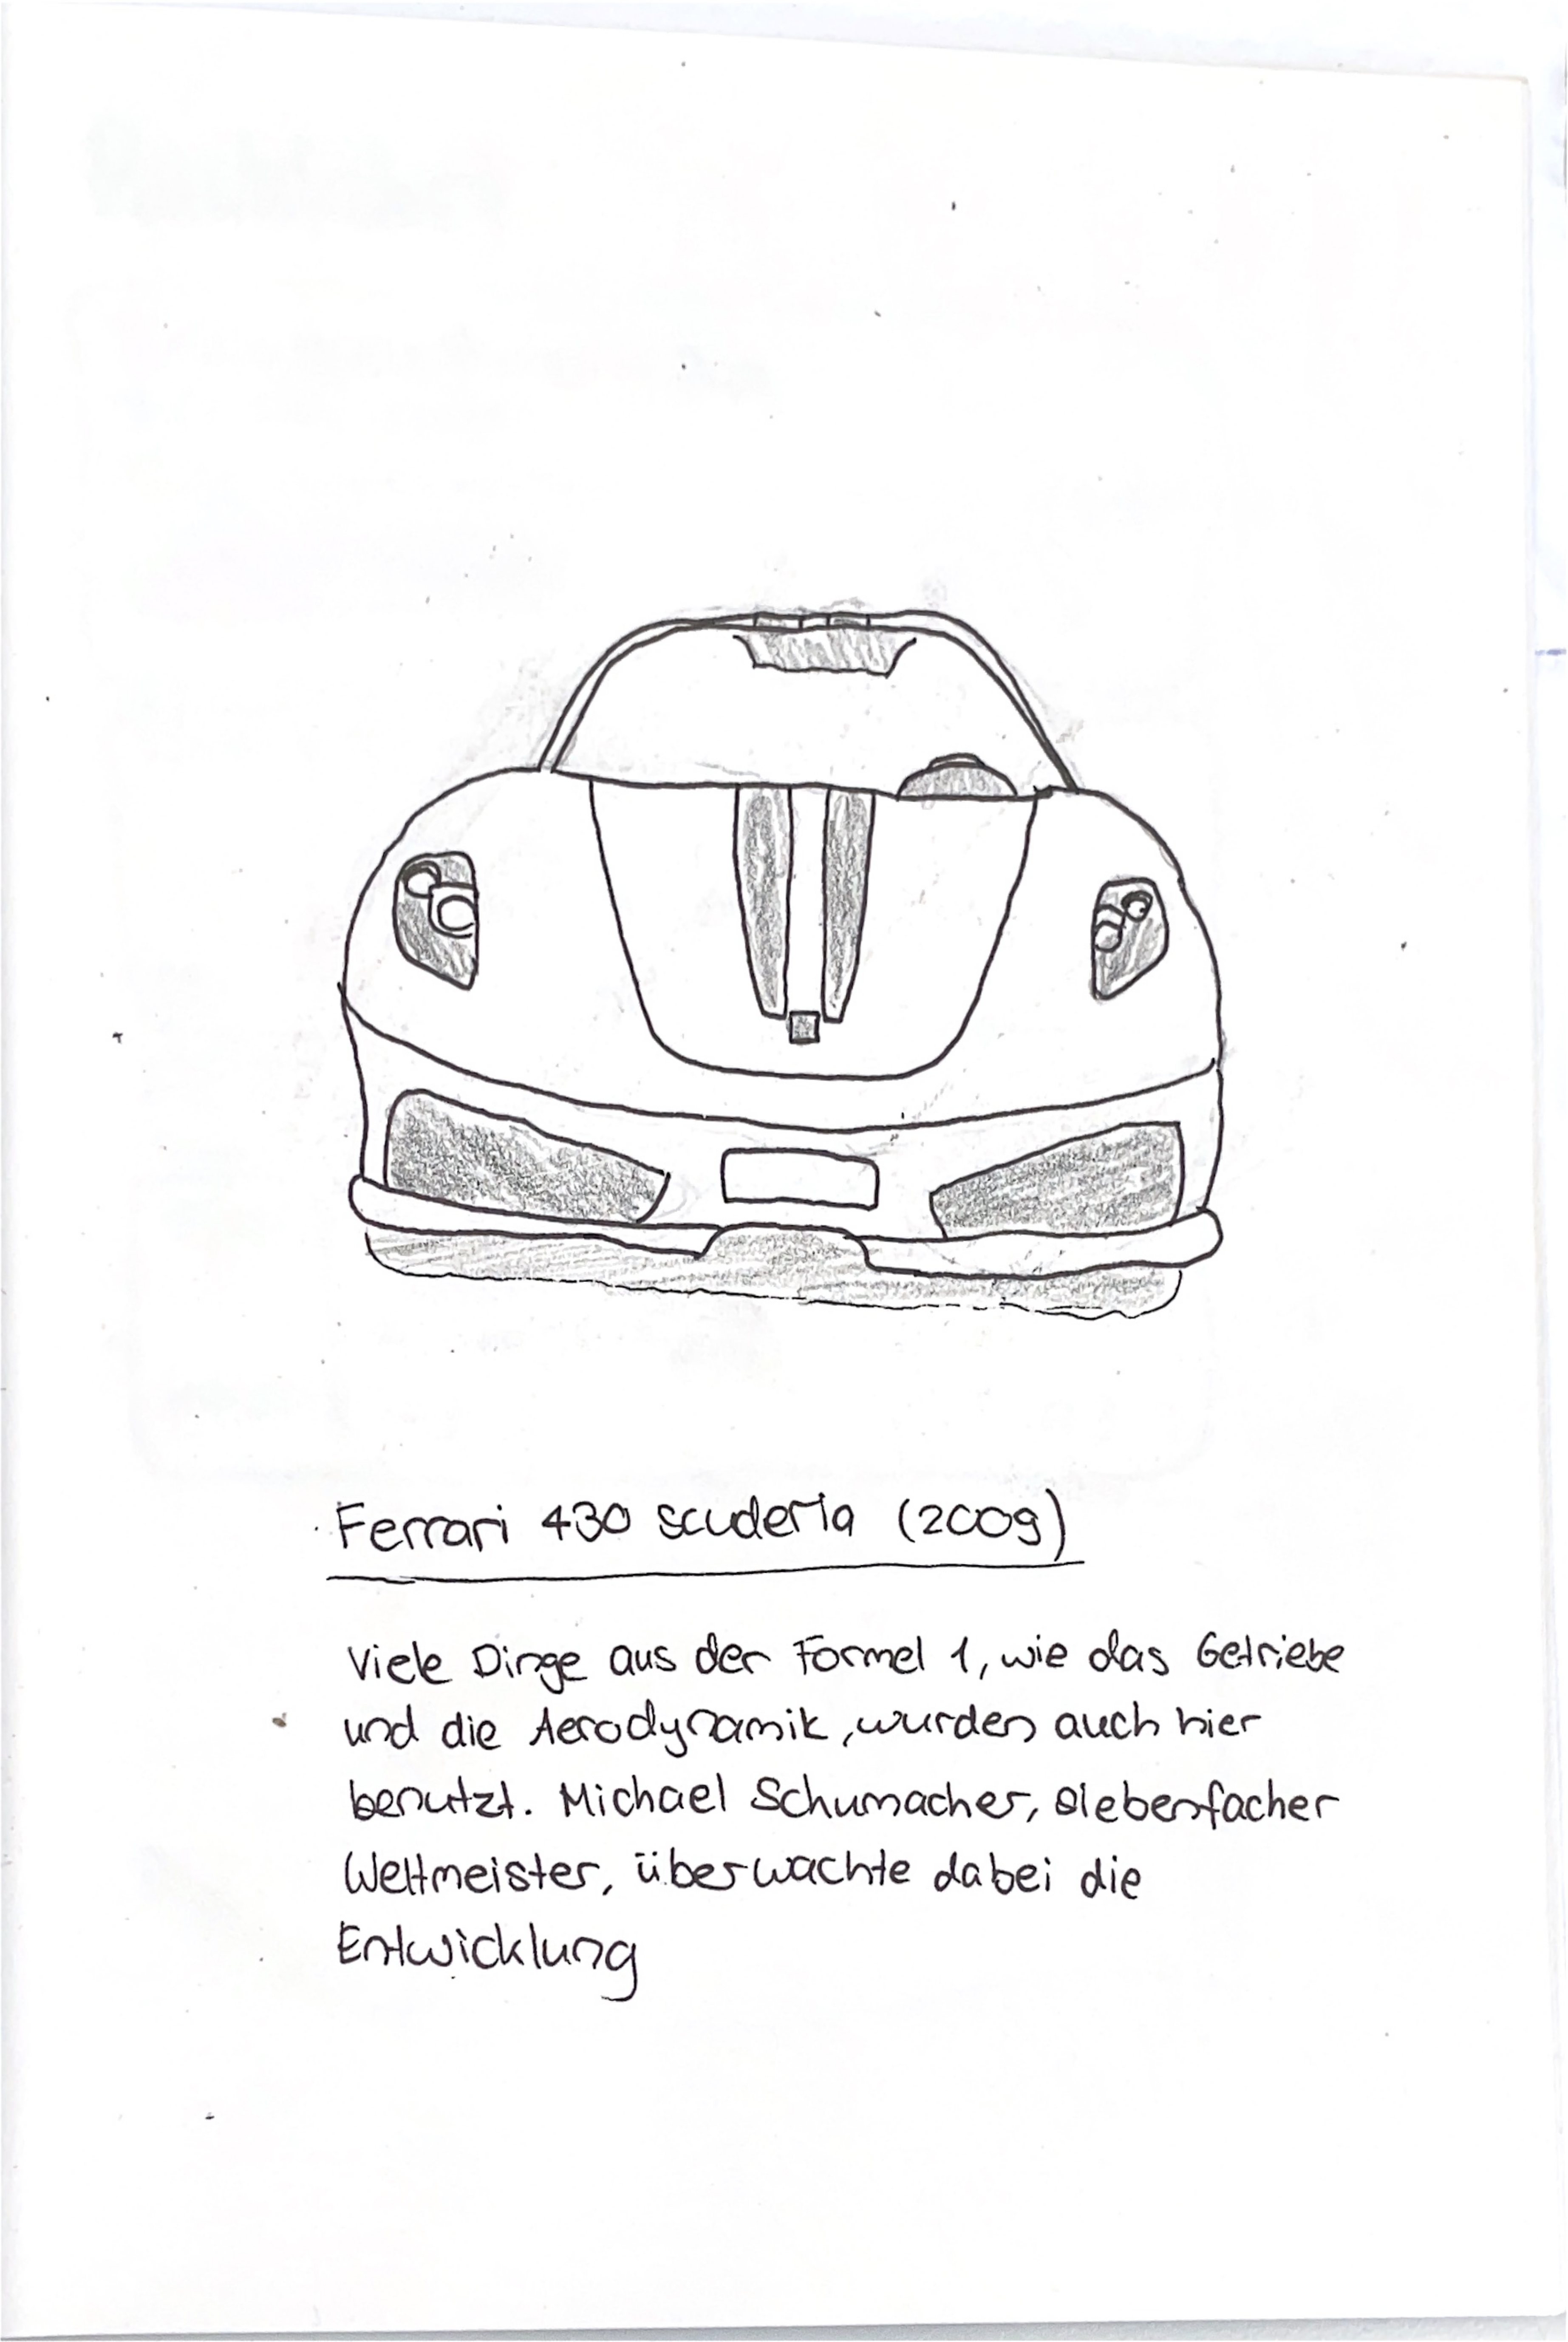 Ferrari 430 scuderia (2009)
Viele Dinge aus der Formel 1, wie das Getriebe
und die Aerodynamik, wurden auch hier
benutzt. Michael Schumacher, siebenfacher
Weltmeister, überwachte dabei die
Entwicklung